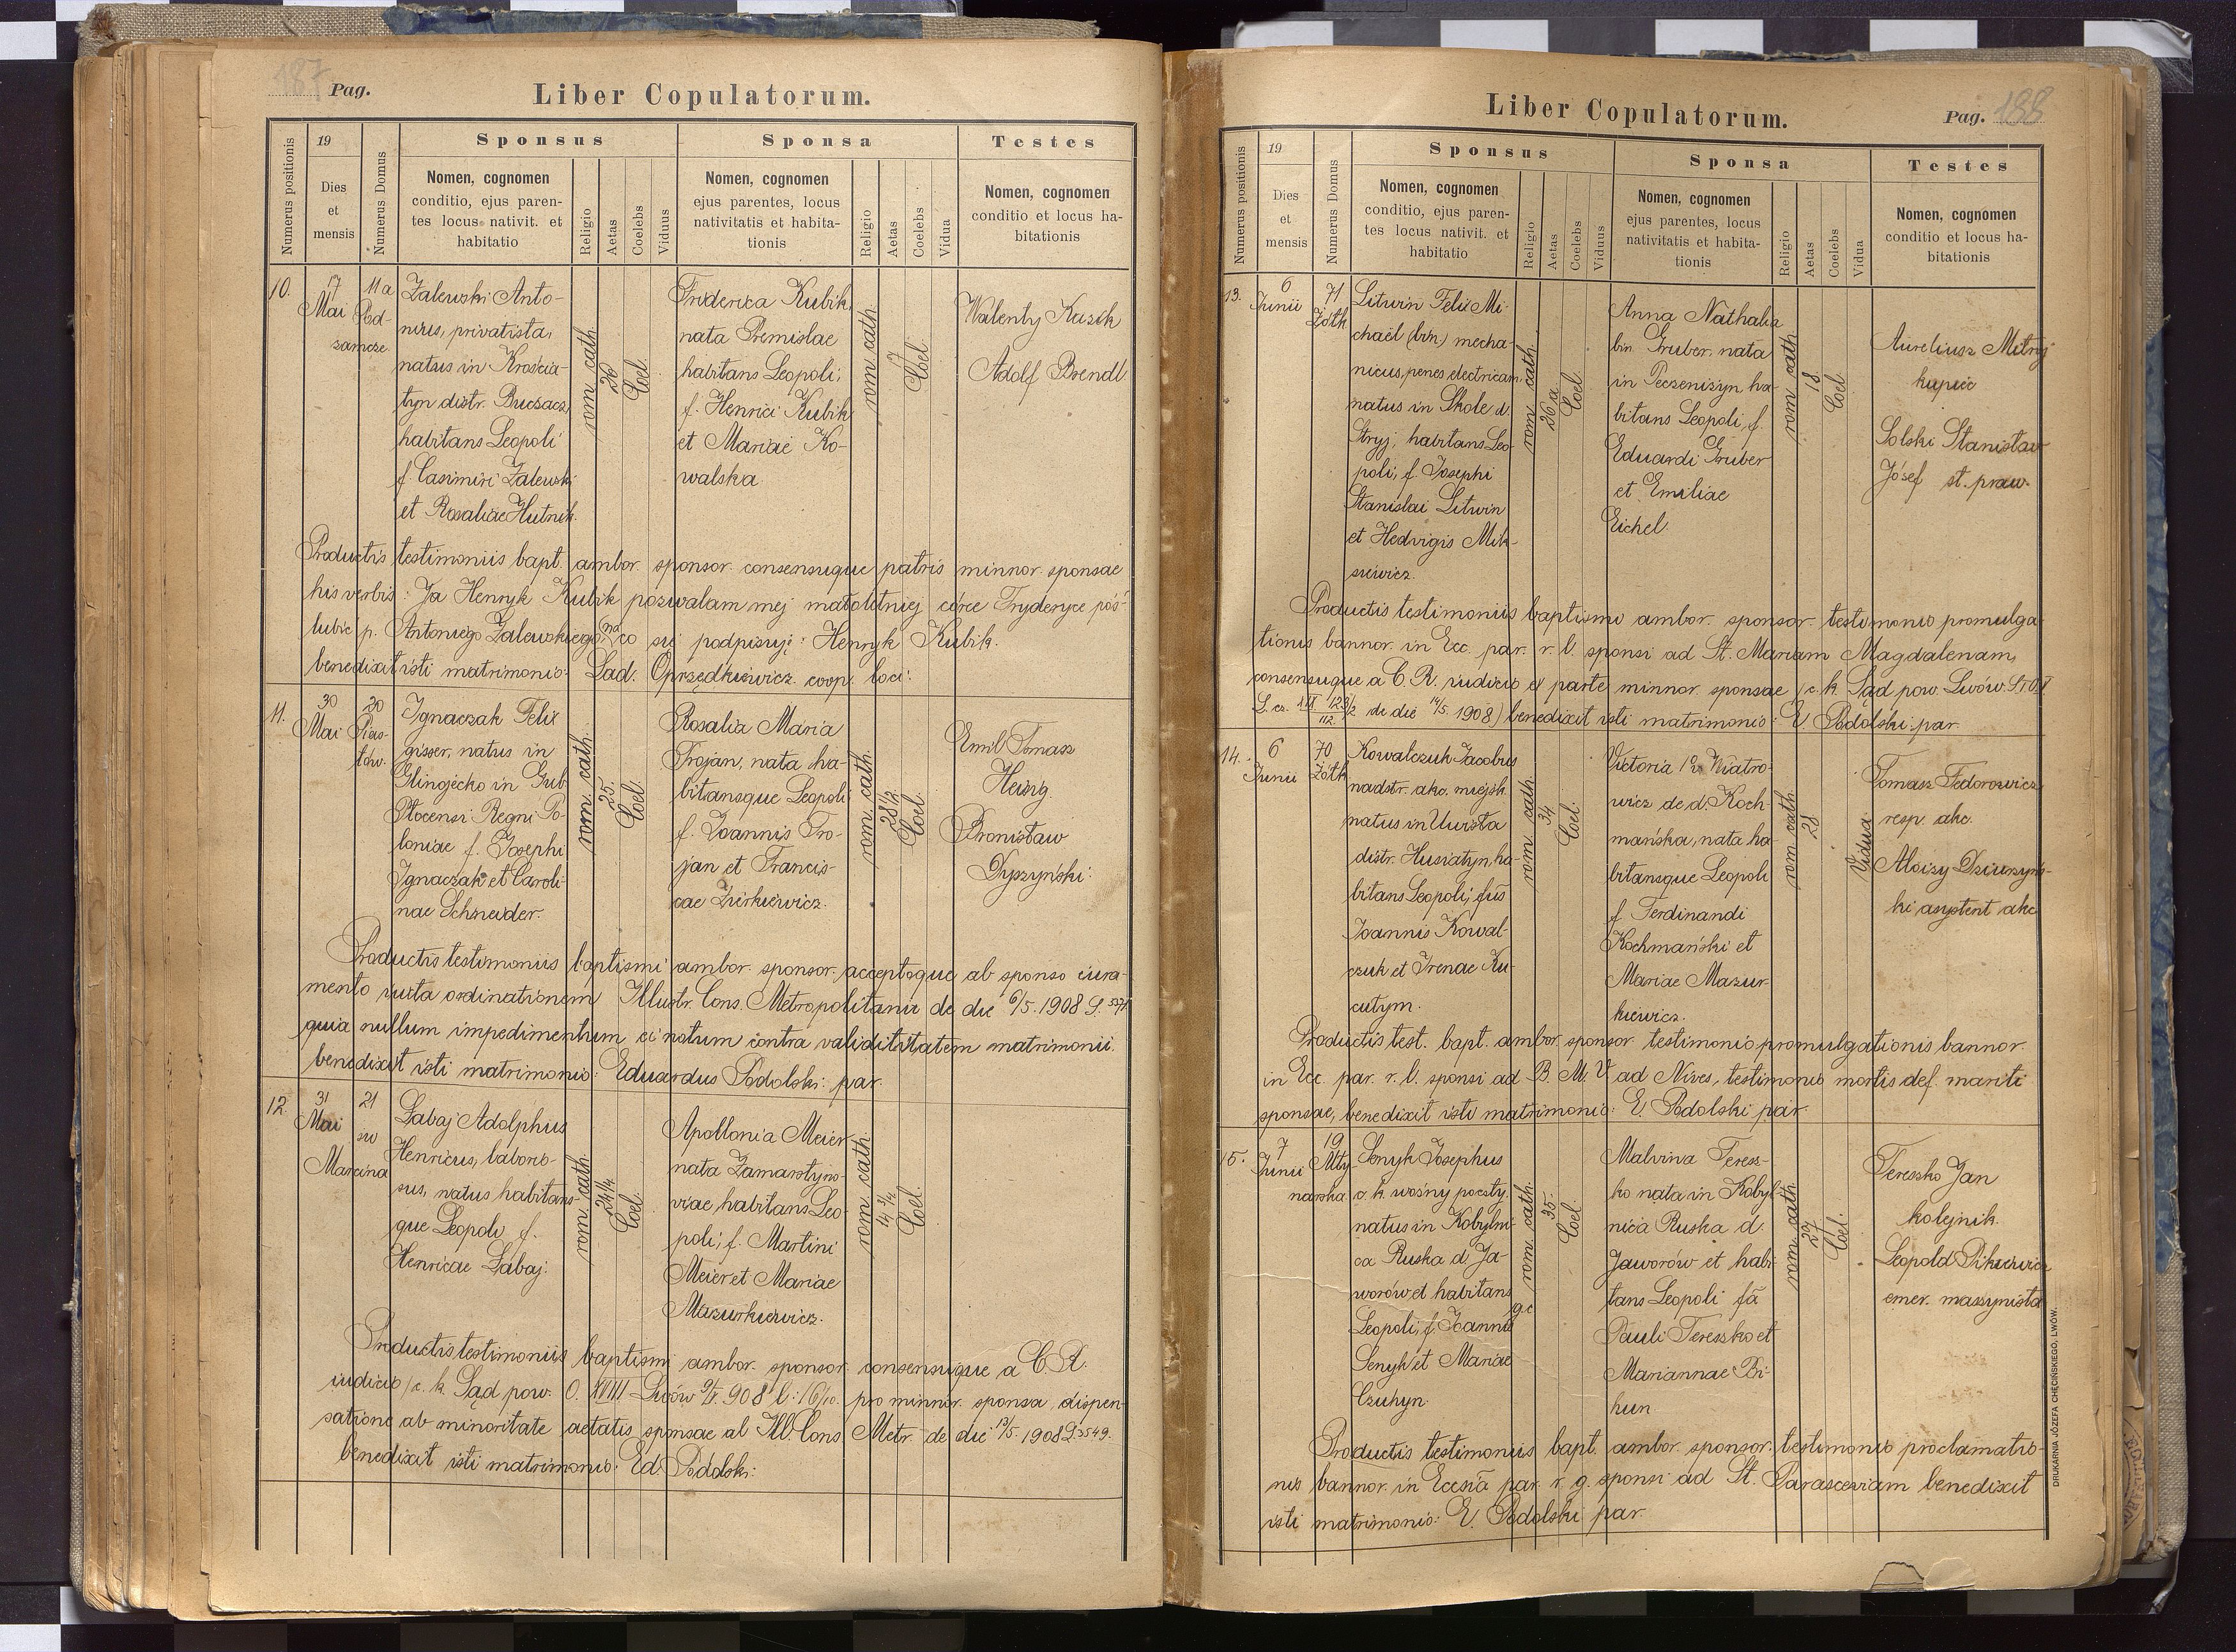 187 Pag.
Liber Copulatorum.
Numerus positionis
19
Dies
et
mensis
Numerus Domus
Sponsus
Nomen, cognomen
conditio, ejus paren-
tes locus nativit. et
habitatio
Religio
Aetas
Coelebs
Viduus
Sponsa
Nomen, cognomen
ejus parentes, locus
nativitatis et habita-
tionis
Religio
Aetas
Coelebs
Vidua
Testes
Nomen, cognomen
conditio et locus ha-
bitationis
10.
17
Mai
11a
Pod-
zamcze
Zalewski Anto-
nius, privatista,
natus in Krościa-
tyn distr. Buczacz,
habitans Leopoli
f. Casimiri Zalewski
et Rosaliae Hutnik.
rom. cath.
26
Coel.
Friderica Kubik,
nata Premislae
habitans Leopoli,
f. Henrici Kubik
et Mariae Ko-
walska.
rom. cath.
Coel.
Walenty Kuzik
Adolf Brendl
Productis testimoniis bapt. ambor. sponsor. consensuque patris minnor. sponsae
his verbis: Ja Henryk Kubik pozwalam mej małoletniej córce Fryderyce poś-
lubić p. Antoniego Zalewskiego, na co się podpisuję: Henryk Kubik.
benedixit isti matrimonio: Lad. Oprzędkiewicz. coop. loci.
11.
30
Mai
20
Pias-
tów.
Ignaczak Felix
gisser, natus in
Glinojecko in Gub
Plocensi Regni Po-
loniae f. Josephi
Ignaczak et Caroli-
nae Schneider.
rom. cath.
25.
Coel.
Rosalia Maria
Trojan, nata ha-
bitansque Leopoli
f. Joannis Tro-
jan et Francis-
cae Zierkiewicz.
rom. cath.
28 1/2.
Coel.
Emil Tomasz
Heinz.
Bronisław
Dyszyński.
Productis testimoniis baptismi ambor. sponsor. acceptoque ab sponso iura-
mento iuxta ordinationem Illustr. Cons. Metropolitani de die 6/5. 1908 L.
quia nullum impedimentum ei notum contra validititatem matrimonii.
benedixit isti matrimonio: Eduardus Podolski: par.
12.
31
Mai
21
św
Marcina
Labaj Adolphus
Henricus, laborio-
sus, natus habitans-
que Leopoli f.
Henricae Labaj.
rom. cath.
24 1/4
Coel.
Apollonia Meier
nata Zamarstyno-
viae, habitans Leo-
poli, f. Martini
Meier et Mariae
Mazurkiewicz.
rom. cath.
14 3/4
Coel.
Productis testimoniis baptismi ambor. sponsor. consensuque a C. R.
iudicio /c. k. Sąd pow. O. XVIII Lwów 908 pro minnor. sponsa, dispen-
satione ab minoritate aetatis sponsae ab Ill. Cons. Metr. de die 13/5. 1908 L. 3549.
benedixit isti matrimonio: Ed. Podolski:
Liber Copulatorum.
Pag. 188
Numerus positionis
19
Dies
et
mensis
Numerus Domus
Sponsus
Nomen, cognomen
conditio, ejus paren-
tes locus nativit. et
habitatio
Religio
Aetas
Coelebs
Viduus
Sponsa
Nomen, cognomen
ejus parentes, locus
nativitatis et habita-
tionis
Religio
Aetas
Coelebs
Vidua
Testes
Nomen, cognomen
conditio et locus ha-
bitationis
13.
6
Junii
71
Żółk
Litwin Felix Mi-
chaël (bin) mecha-
nicus, penes electricam
natus in Skole d.
Stryj, habitans Leo-
poli, f. Josephi
Stanislai Litwin
et Hedvigis Mik-
siewicz.
rom. cath.
26 a
Coel.
Anna Nathalia
bin. Gruber, nata
in Peczeniżyn, ha-
bitans Leopoli, f.
Eduardi Gruber
et Emiliae
Eichel.
rom. cath.
18.
Coel.
Aureliusz Mitryj
kupiec
Solski Stanisław
Józef st. praw.
Productis testimoniis baptismi ambor. sponsor. testimonio promulga-
tionis bannor. in Ecc. par. r. l. sponsi ad St. Mariam Magdalenam,
consensuque a C. R. iudicio ex parte minnor. sponsae /c. k. Sąd pow. Lwów
de die 14/5. 1908/ benedixit isti matrimonio: E. Podolski: par.
14.
6
Junii
70
Żółk
Kowalczuk Jacobus
nadstr. akc. miejsk.
natus in Uwisła
distr. Husiatyn, ha-
bitans Leopoli, fus
Joannis Kowal-
czuk et Irenae Ku-
cutym.
rom. cath.
34
Coel.
Victoria Wiatro-
wicz de d. Koch-
mańska, nata ha-
bitansque Leopoli
f. Ferdinandi
Kochmański et
Mariae Mazur-
kiewicz.
rom. cath.
28
Vidua
Tomasz Fedorowicz
resp. akc.
Aloizy Dziurzyńs-
ki asystent akc
Productis test. bapt. ambor. sponsor. testimonio promulgationis bannor.
in Ecc. par. r. l. sponsi ad B. M. V. ad Nives, testimonio mortis def. mariti
sponsae, benedixit isti matrimonio: E. Podolski par.
15.
7
Junii
19
Mły-
narska
Senyk Josephus
c. k. woźny poczty.
natus in Kobylni-
ca Ruska d. Ja-
worów et habitans
Leopoli, f. Joannis
Senyk et Mariae
Czuhyn.
rom. cath.
gc
35.
Coel.
Malvina Teresz-
ko nata in Kobyl-
nica Ruska d.
Jaworów et habi-
tans Leopoli fa
Pauli Tereszko et
Mariannae Bi-
hun
rom. cath.
27
Coel.
Tereszko Jan
kolejnik.
Leopold Pikiewicz
emer. maszynista
Productis testimoniis bapt. ambor. sponsor. testimonio proclamatio-
nis bannor. in Ecesia par. r. g. sponsi ad St. Parasceviam benedixit
isti matrimonio: E. Podolski par.
DRUKARNIA JÓZEFA CHĘCIŃSKIEGO. LWÓW.